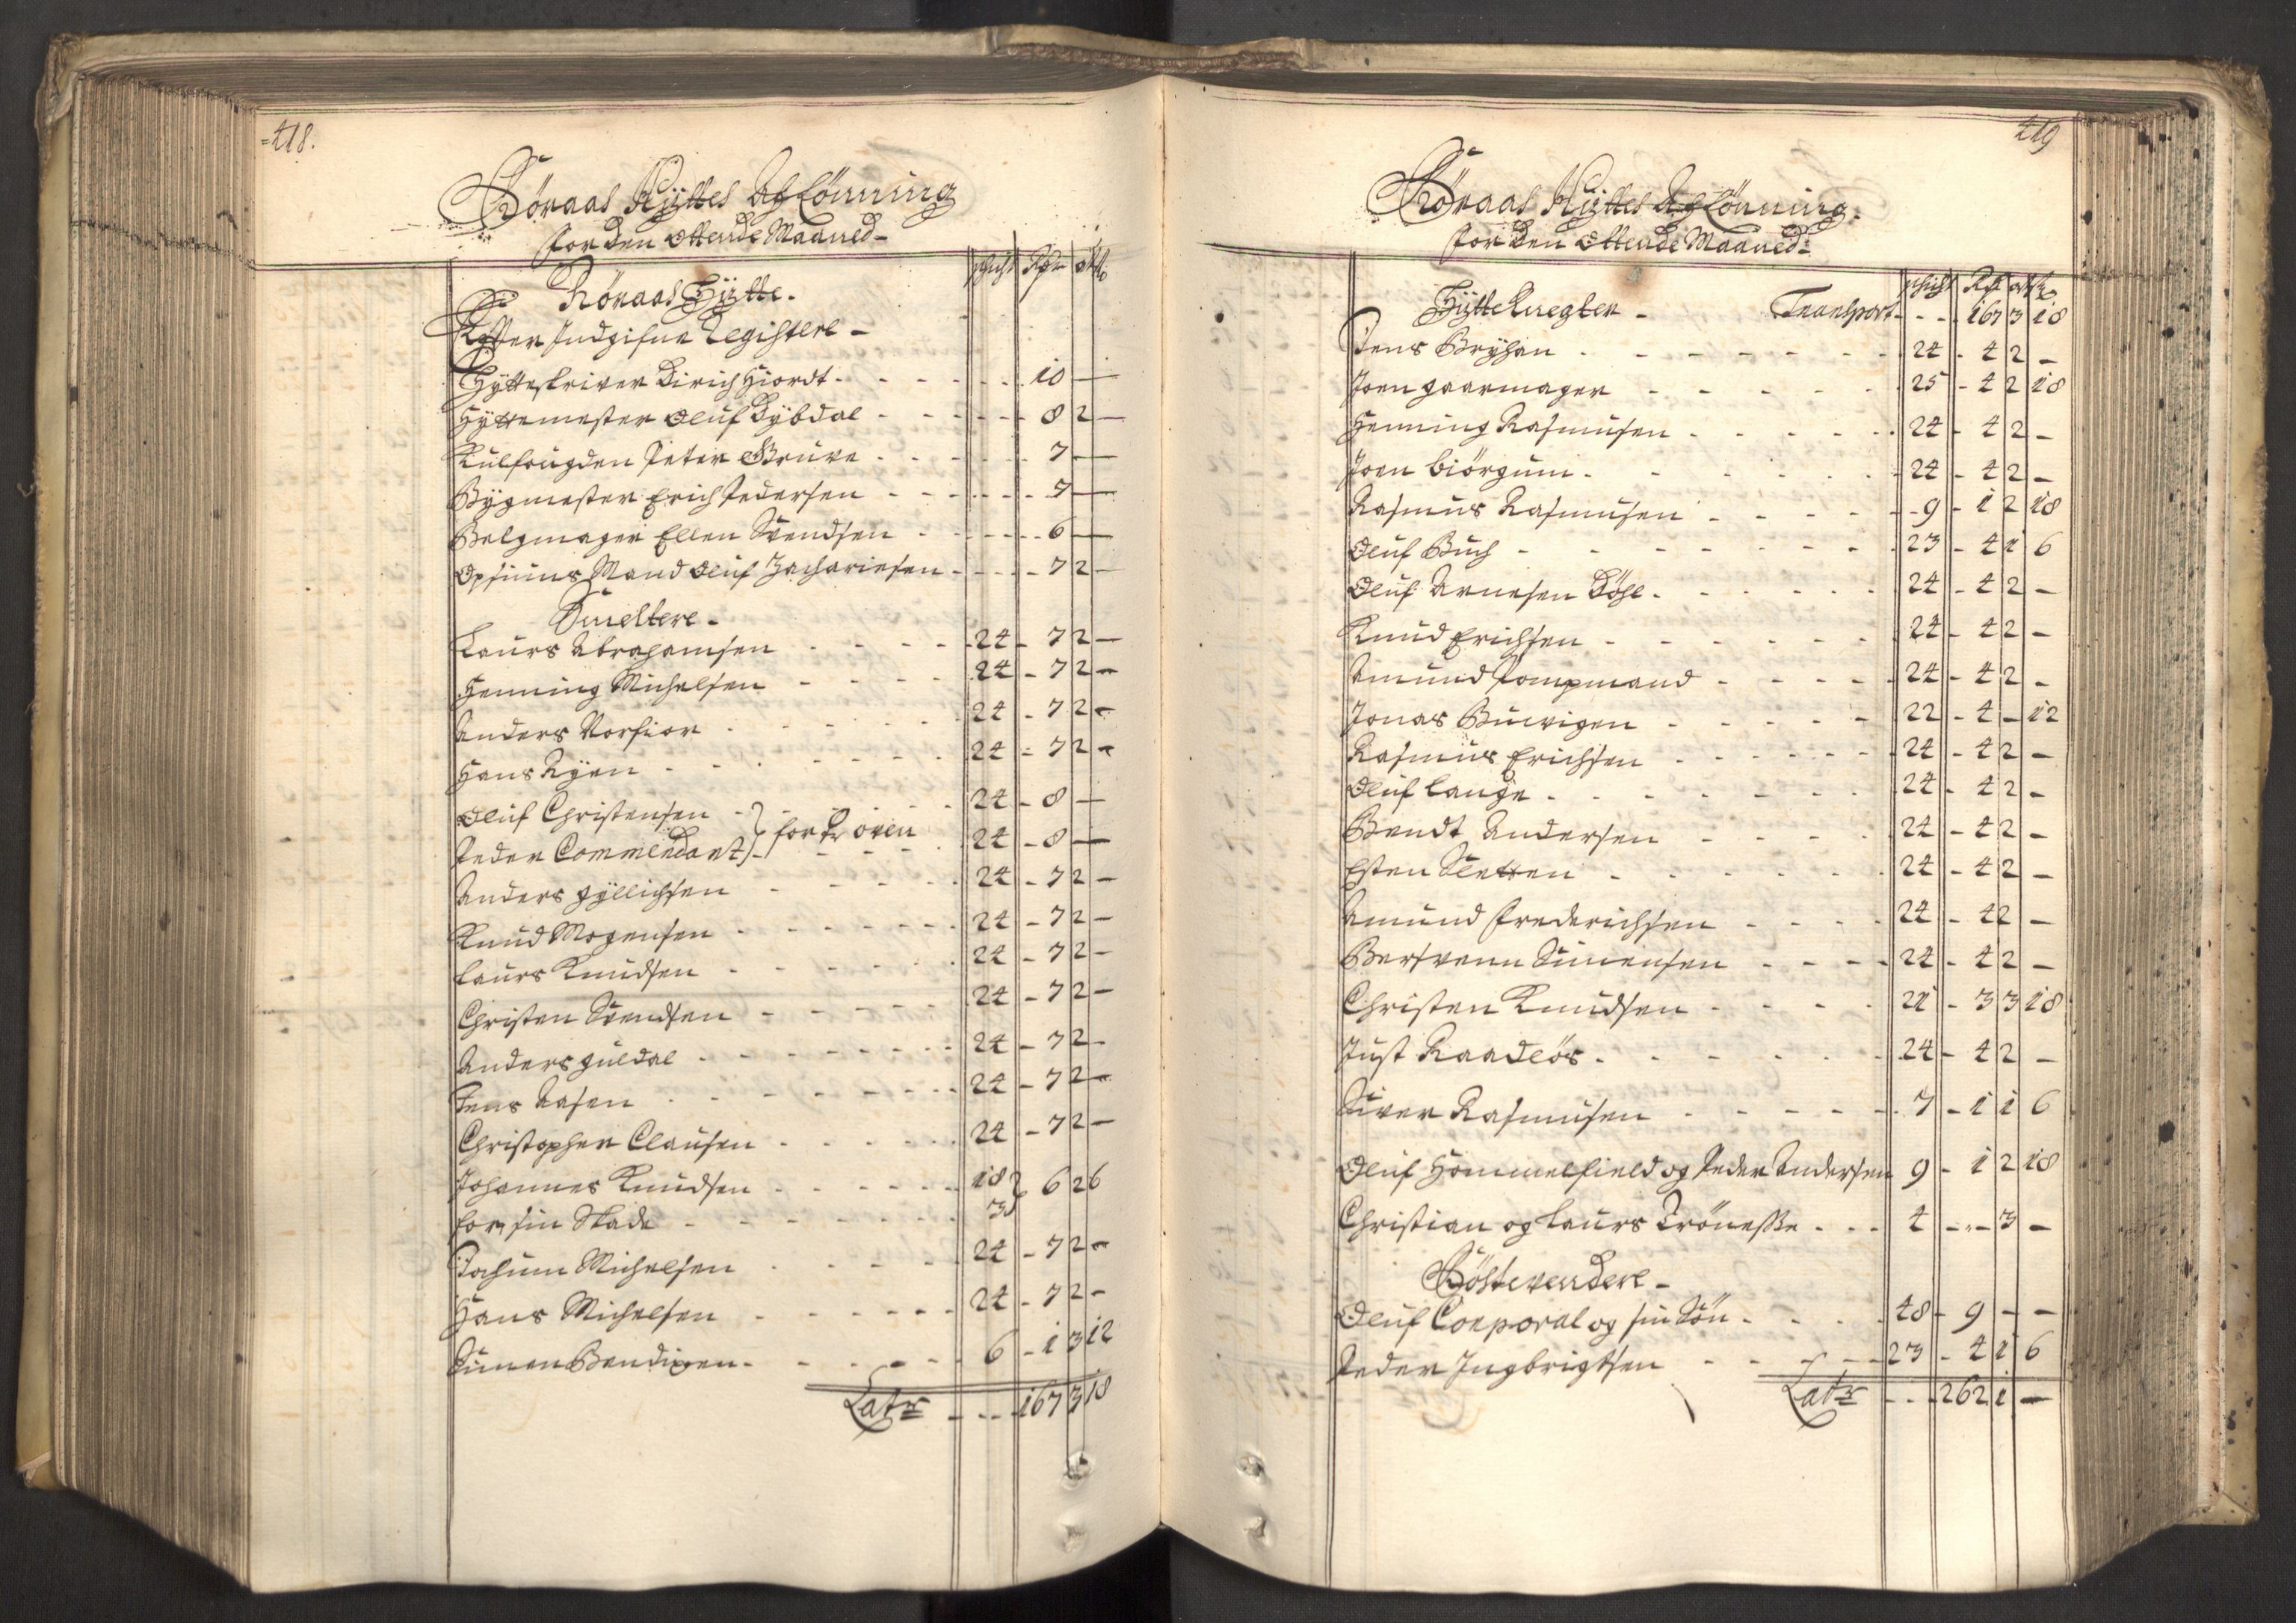 418.
Röraas Hyttes Aflönning
for den Ottende Maaned
schicht Rdr ort ß
Röraas Hytte.
Efter Indgifne Registere
Hyttskriver Dirich Hiordt - 10 -
Hyttemester Oluf Dybdal - 8 2 -
Kulfougden Peter Gruve - 7 -
Bygmester Erich Pedersen - 7 -
Belgmager Ellen Svendsen - 6 -
Opsiuns Mand Oluf Zachariesen - 7 2 -
Smeltere
Laurs Abrahamsen - 24 - 7 2 -
Henning Michelsen - 24 - 7 2 -
Anders Norfior - 24 - 7 2 -
Hans Ryen - 24 - 7 2 -
Oluf Christensen - 24 - 8 -
Peder Commendant for Pr oven 24 - 8 -
Anders Gyllichsen - 24 - 7 2 -
Knud Mogensen - 24 - 7 2 -
Laurs Knudsen - 24 - 7 2 -
Christen Svendsen - 24 - 7 2 -
Anders Guldal - 24 - 7 2 -
Jens Aasen - 24 - 7 2 -
Christopher Clausen - 24 - 7 2 -
Johannes Knudsen - 18 } 6 2 6
for sin Skade - 3
Jochum Michelsen - 24 - 7 2 -
Hans Michelsen - 24 - 7 2 -
Simen Bendixen - 6 - 1 3 12
Latr - 167 3 18
419
Röraas Hyttes Aflönning.
for den Ottende Maaned
schicht Rdr ort ß
Hytte Knegter - Transport - 167 3 18
Jens Bryhan - 24 - 4 2 -
Joen Gaarmager - 25 - 4 2 18
Henning Rasmusen - 24 - 4 2 -
Joen Biörgum - 24 - 4 2 -
Rasmus Rasmusen - 9 - 1 2 18
Oluf Buch - 23 - 4 1 6
Oluf Arnesen Döhl - 24 - 4 2 -
Knud Erichsen - 24 - 4 2 -
Amund Pompmand - 24 - 4 2 -
Jonas Buvigen - 22 - 4 - 12
Rasmus Erichsen - 24 - 4 2 -
Oluf Lange - 24 - 4 2 -
Bendt Andersen - 24 - 4 2 -
Esten Sletten - 24 - 4 2 -
Amund Frederichsen - 24 - 4 2 -
Bersvenn Simensen - 24 - 4 2 -
Christen Knudsen - 21 - 3 3 18
Just Raadlös - 24 - 4 2 -
Siver Rasmusen - 7 - 1 1 6
Oluf Hommelfield og Peder Andersen 9 - 1 2 18
Christian og Laurs Trönesse - 4 - - 3 -
Röstevendere
Oluf Corporal og sin Sön - 48 - 9 - -
Peder Ingbrigtsen - 23 - 4 1 6
Latr - 262 1 -